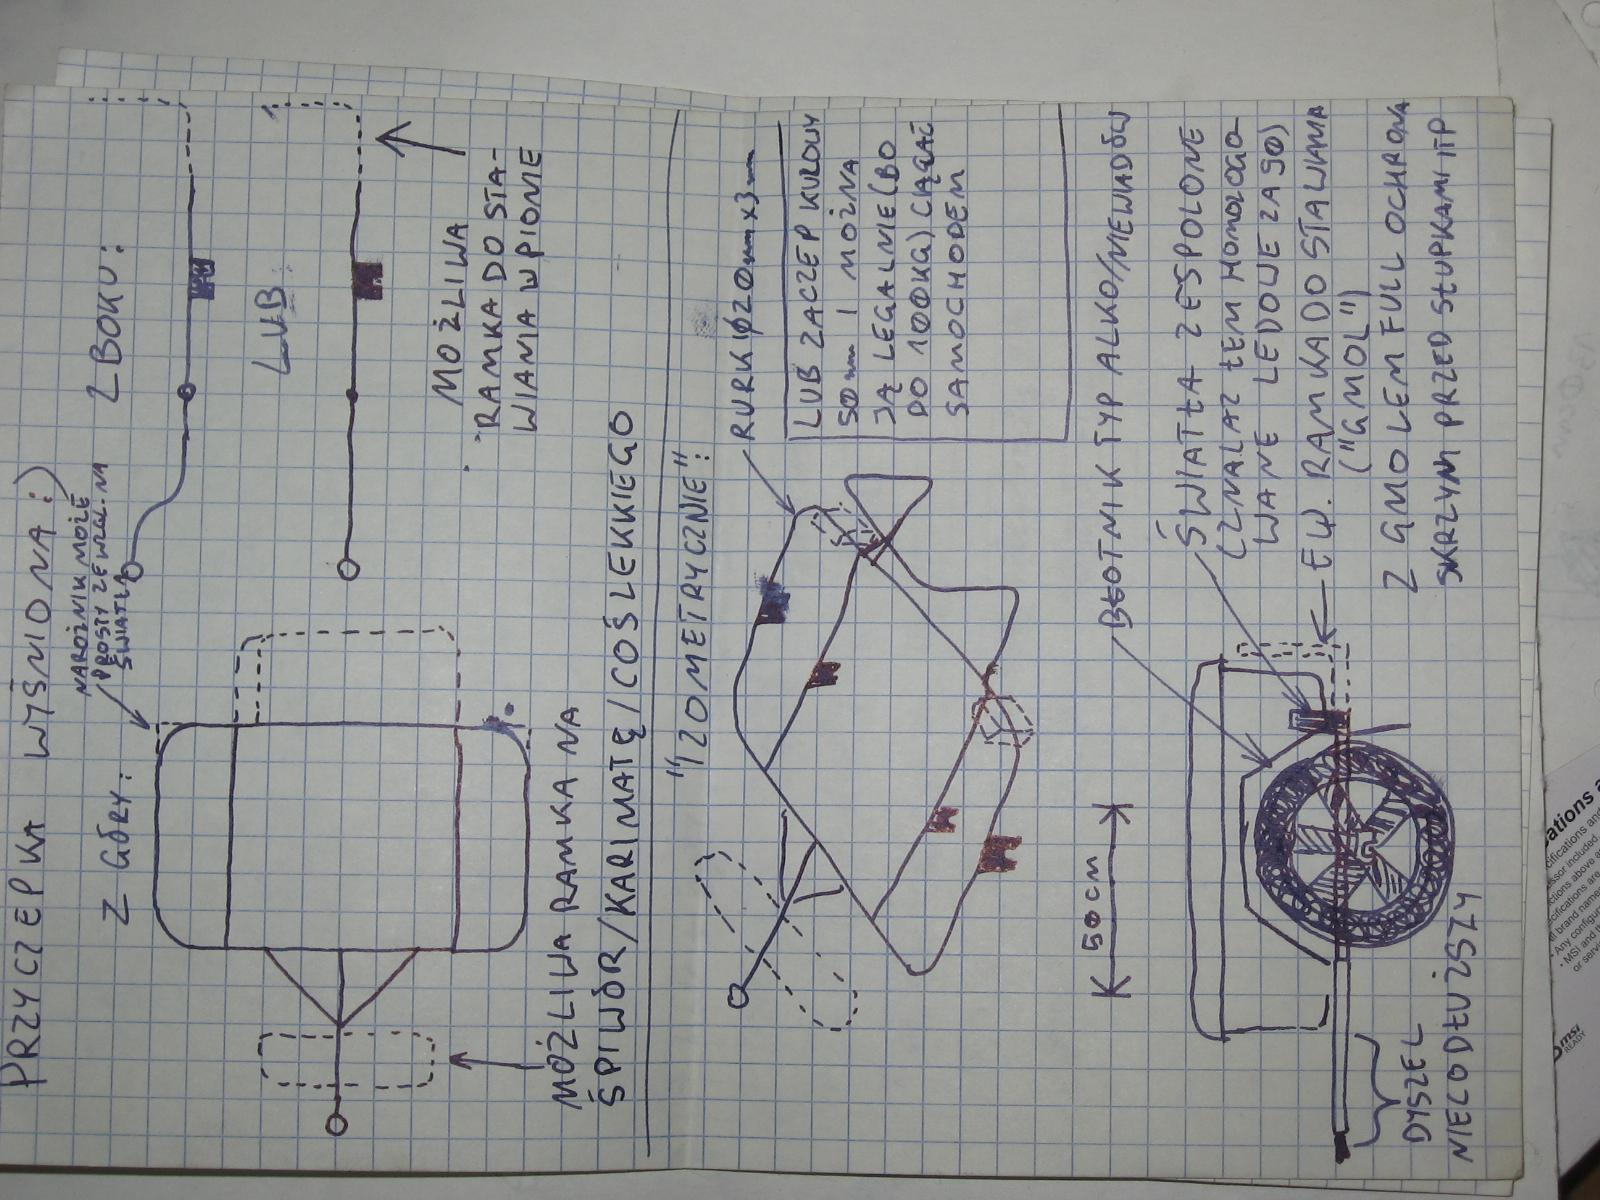 PRZYCZEPKA WYŚNIONA:)
NAROŻNIK MOŻE
PROSTY ZE WZGL. NA
ŚWIATŁ
Z GÓRY:
Z BOKU:
LUB:
MOŻLIWA
RAMKA DO STA-
WIANIA W PIONIE
MOŻLIWA RAMKA NA
ŚPIWÓR/KARIMATĘ/COŚ LEKKIEGO
"IZOMETRYCZNIE":
RURKI Ø20mm x 3mm
LUB ZACZEP KULOWY
50mm I MOŻNA
JĄ LEGALNIE (BO
DO 100KG) CIĄGAĆ
SAMOCHODEM
BŁOTNIK TYP ALKO/NIEWIADÓW
ŚWIATŁA ZESPOLONE
(ZNALAZŁEM HOMOLOGO-
WANE LEDOWE ZA 90)
EW. RAMKA DO STAWIANIA
("GMOL")
Z GMOLEM FULL OCHRONA
SKRZYNI PRZED SŁUPKAMI ITP
50cm
DYSZEL
NIECO DŁUŻSZY
ations a
msi
READY